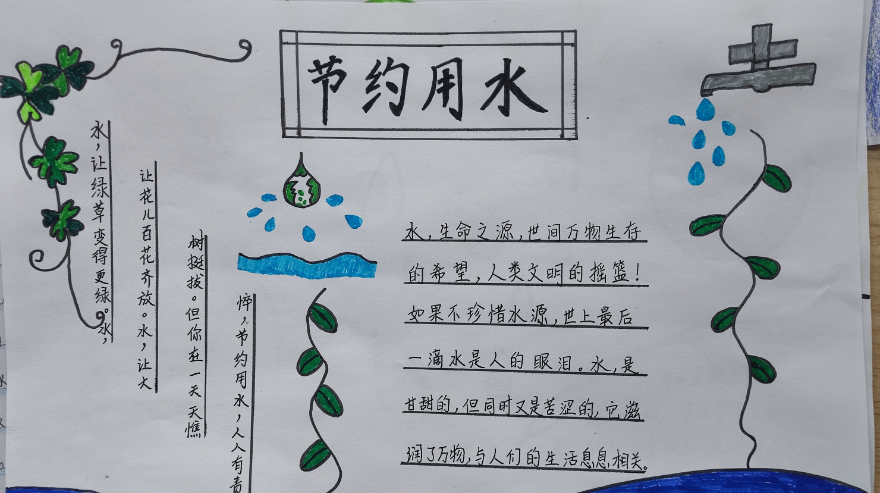 节约用水
水,让绿草变得更绿。水,
让花儿百花齐放。水,让大
树挺拔。但你在一天天憔
悴,节约用水,人人有责
水,生命之源,世间万物生存
的希望,人类文明的摇篮!
如果不珍惜水源,世上最后
一滴水是人的眼泪。水,是
甘甜的,但同时又是苦涩的,它滋
润了万物,与人们的生活息息相关。